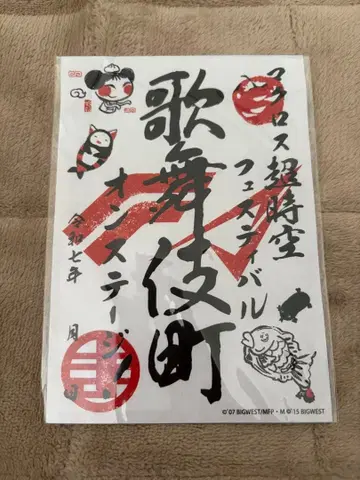 マクロス超時空
フェスティバル
歌舞伎町
オンステージ!
令和七年 月 日
©'07 BIGWEST/MFP・M ©'15 BIGWEST